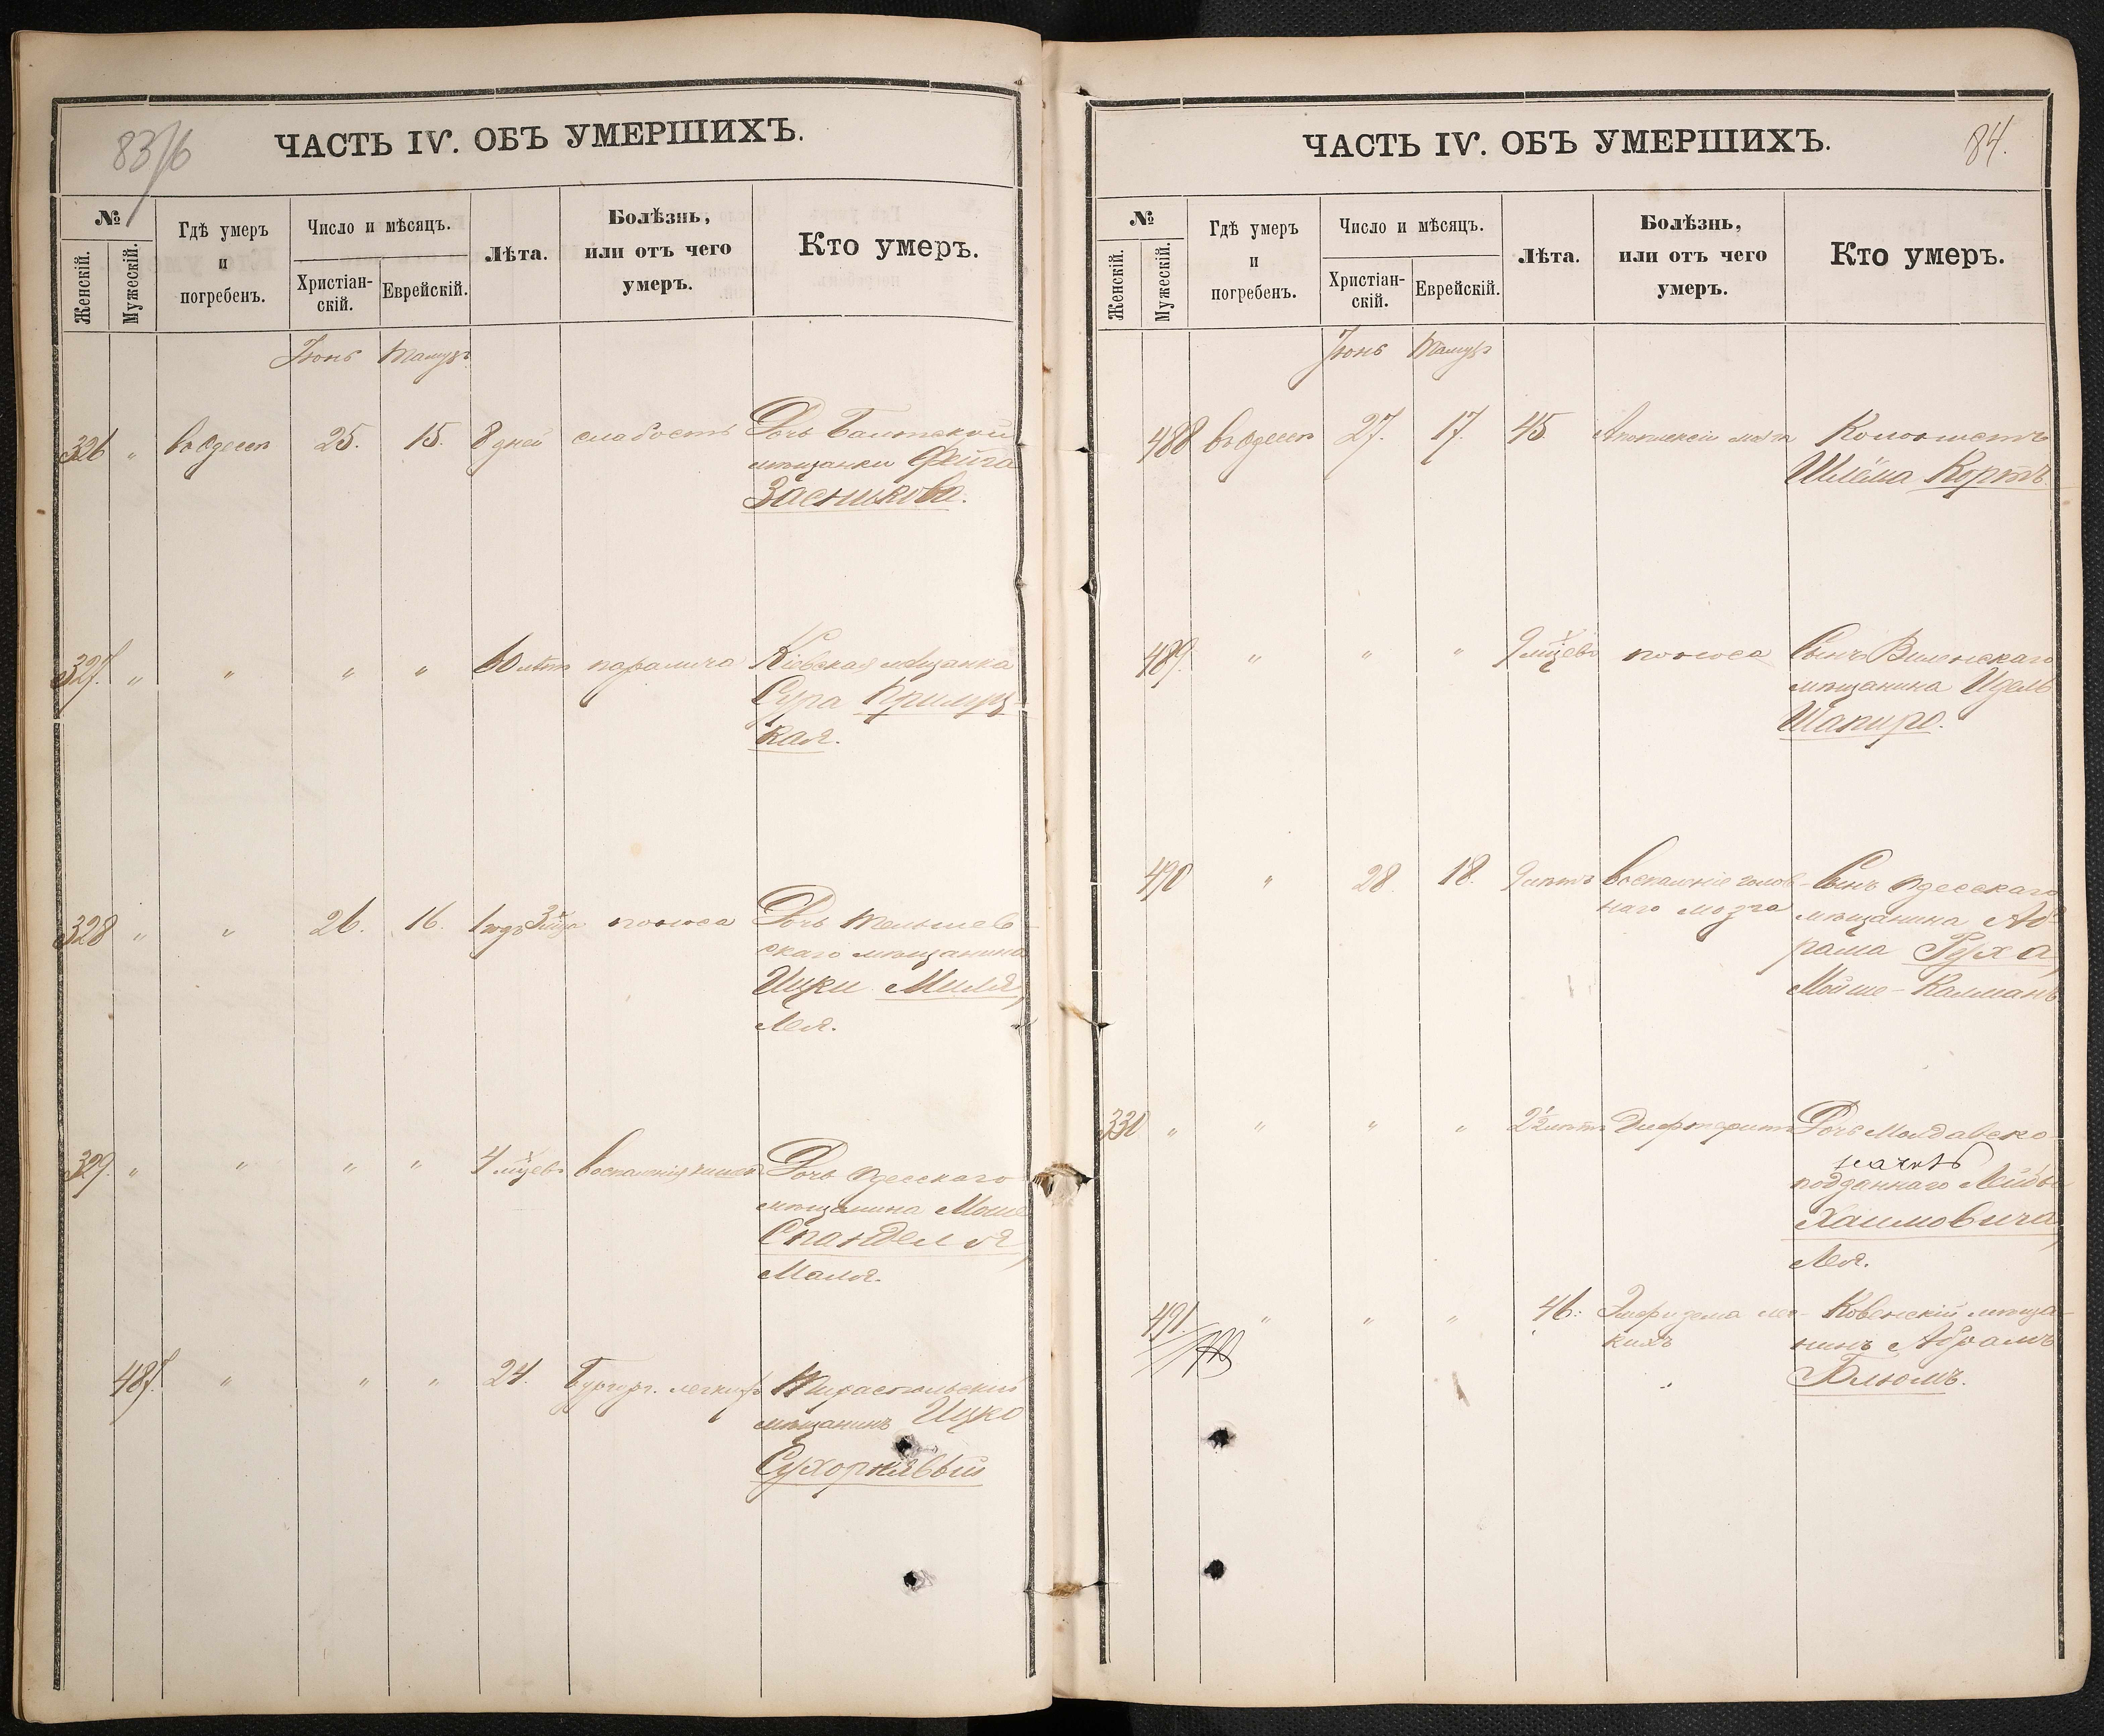 83/6
ЧАСТЬ IV. ОБЪ УМЕРШИХЪ.
№
Женскій.
Мужескій.
Гдѣ умеръ
и
погребенъ.
Число и мѣсяцъ.
Христіан-
скій.
Еврейскій.
Лѣта.
Болѣзнь,
или отъ чего
умеръ.
Кто умеръ.
Іюнь Тамузъ
326 " въ Одессѣ 25. 15. 8 дней слабость Дочь Балтской
мѣщанки Фейга
Засникова.
327. " " " " 60 лѣтъ паралича Кіевская мѣщанка
Сура Прилуц-
кая.
328 " " 26. 16. 1 годъ 3 м-ца поноса Дочь Тельшев-
скаго мѣщанина
Ицки Миля,
Лея.
329. " " " " 4 м-цевъ воспаленія кишекъ Дочь Одесскаго
мѣщанина Моше
Спанделя,
Маля.
487. " " " 24. легкихъ Тираспольскій
мѣщанинъ Ицко
Сухорлявый
ЧАСТЬ IV. ОБЪ УМЕРШИХЪ.
84.
№
Женскій.
Мужескій.
Гдѣ умеръ
и
погребенъ.
Число и мѣсяцъ.
Христіан-
скій.
Еврейскій.
Лѣта.
Болѣзнь,
или отъ чего
умеръ.
Кто умеръ.
Іюнь Тамузъ
488 въ Одессѣ 27. 17. 45. Апоплексіи мозга Колонистъ
Шлёма Кортъ.
489. " " " 9 м-цевъ поноса Сынъ Виленскаго
мѣщанина Идель
Шапиро.
490 " 28. 18. 9 лѣтъ Воспаленіе голов- Сынъ Одесскаго
наго мозга мѣщанина Аб-
рама Руха,
Мойше-Калманъ
330 " " " " 2½ лѣтъ Дифтеритъ Дочь Молдавско-
подданнаго Лейбы
Хаимовича,
Лея.
491. " " " 46. Эмфизема лег- Ковенскій мѣща-
кихъ нинъ Абрамъ
Блюмъ.